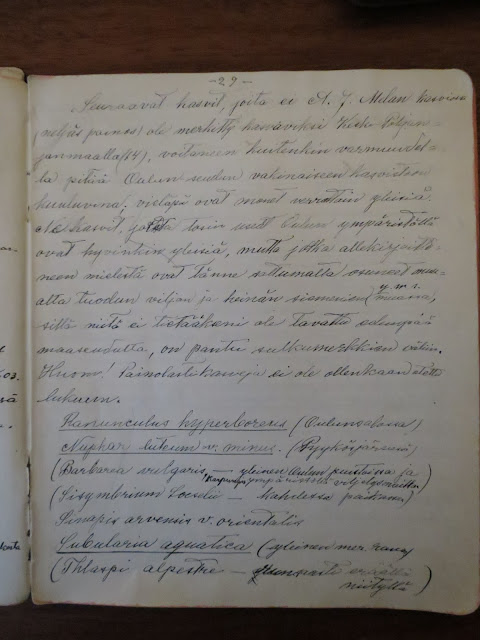 - 29 -
Seuraavat kasvit, joita ei A. J. Melan kasviossa
(neljäs painos) ole merkitty kasvaviksi Keski Pohjan-
janmaalla (14), voitanen kuitenkin varmuudel-
la pitää Oulun seudun vakinaiseen kasvistoon
kuuluvina, vieläpä ovat monet verrattain yleisiä.
Ne kasvit, jotka tosin ovat Oulun ympäristöllä
ovat hyvinkin yleisiä, mutta jotka allekirjoitta-
neen mielestä ovat tänne sattumalta osuneet mu-
alta tuodun viljan ja heinän siementen y. m. s. muassa,
sillä niitä ei tietääkseni ole tavattu edempää
maaseudulta, on pantu sulkumerkkien väliin.
Huom! Painolastikasveja ei ole ollenkaan otettu
lukuun.
Ranunculus hyperboreus (Oulunsalossa)
Nuphar luteum v. minus. (Pyykösjärvessä)
(Barbarea vulgaris, — yleinen Oulun puistoissa ja
Kaupungin ympäristöllä viljelysmailla)
(Sisymbrium Loeselii — kahdessa paikassa)
Sinapis arvensis v. orientalis
Subularia aquatica (yleinen mer. rann
(Thlaspi alpestre — eräällä
niityllä)